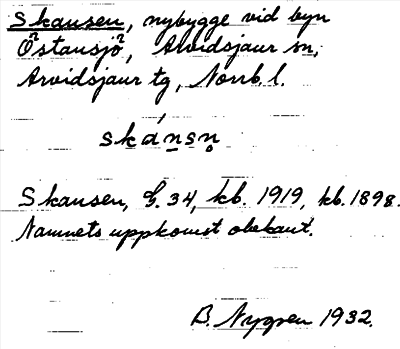 Skansen, nybygge vid byn
Östansjö, Arvidsjaur sn,
Arvidsjaur tg, Norrb. l.
skánsn̥
Skansen, G. 34, kb. 1919, kb. 1898.
Namnets uppkomst obekant.
B. Nygren 1932.